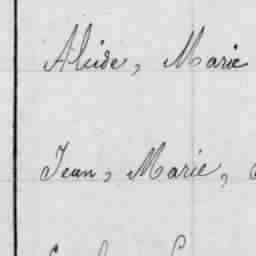 Alcide, Marie
Jean, Marie,